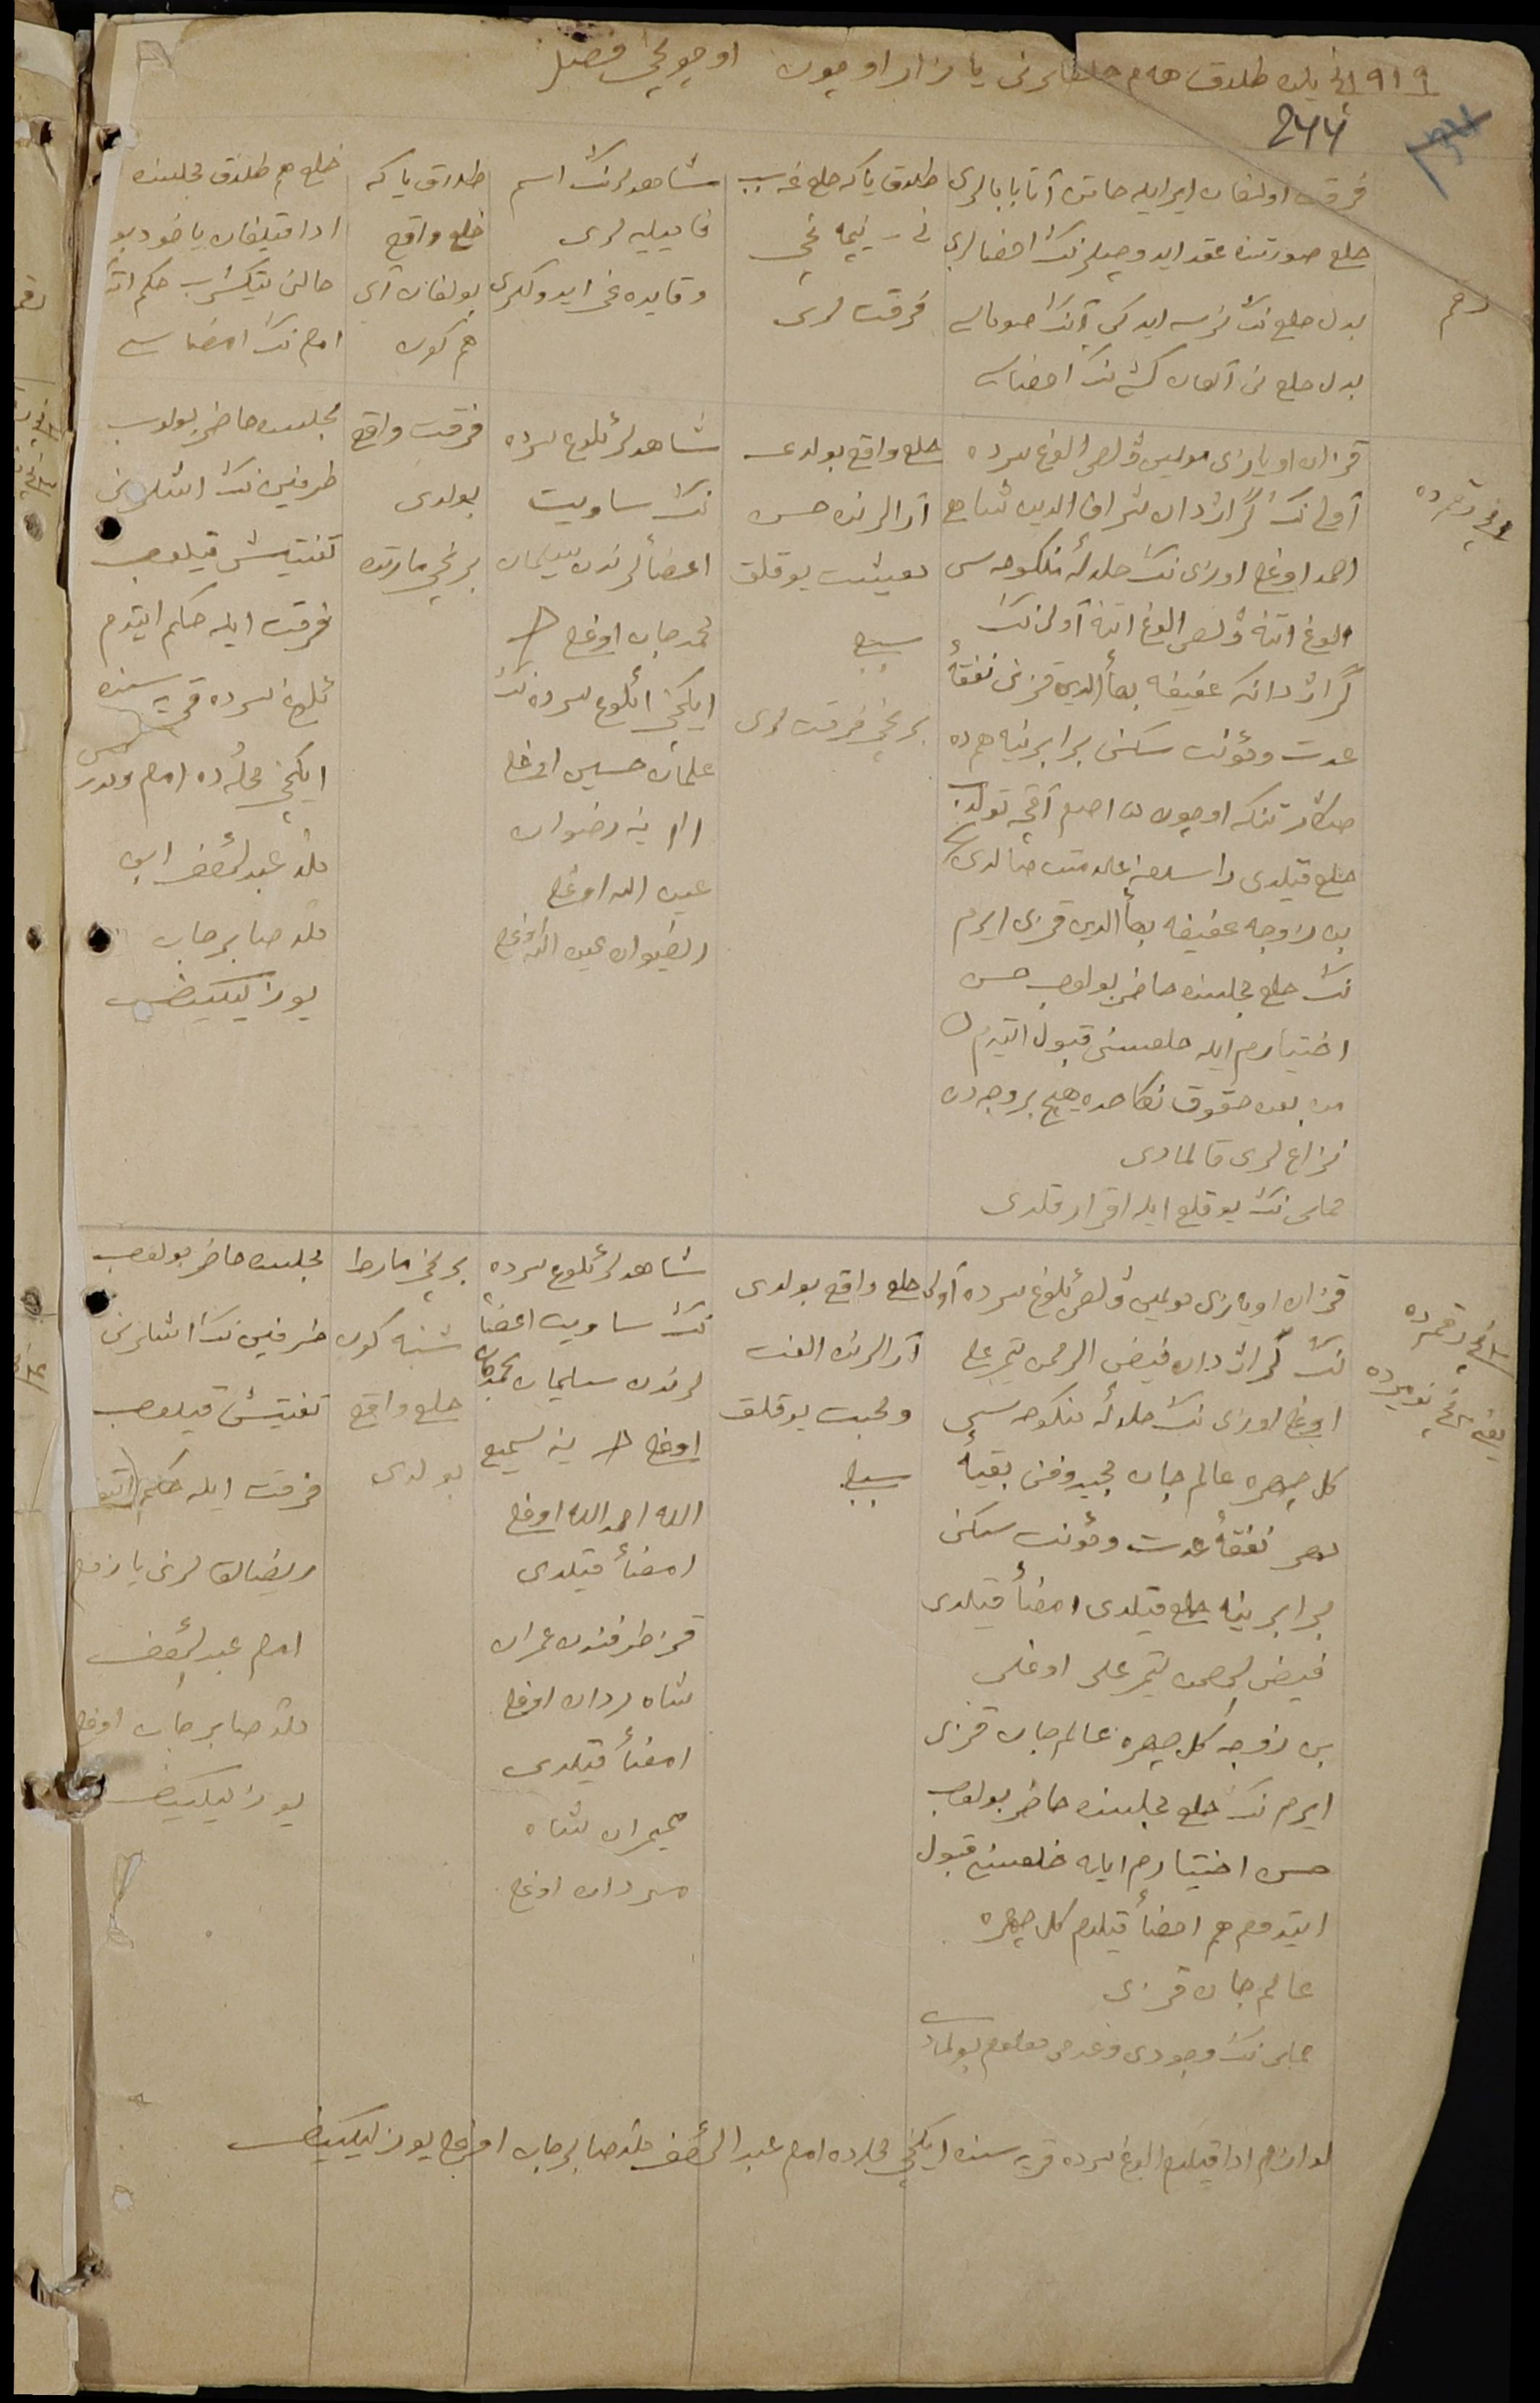 ۱۹۱۹ نچی یلده طلاق هم خلعلرنی یازار اوچون اوچونچی فصل
244
رقم
فرقت اولنغان ایر ایله خاتون آتا بابالری
خلع صورتنده عقد ایدوچیلرنڭ امضالری
بدل خلع نڭ نرسه ایدکی آنڭ صوماسی
بدل خلع نی آلغان کشی نڭ امضاسی
طلاق یاکه خلع غه سبب
نی نیچه نچی
فرقت لری
شاهدلرنڭ اسم
فامیلیه لری
وقایده غی ایدوکلری
طلاق یاکه
خلع واقع
بولغان آی
هم کون
خلع هم طلاق مجلسنده
ادا قیلغان یاخود بو
حالنی تیکشرب حکم ایتکان
امام نڭ امضاسی
۱ نچی رقمده
قزان اویازی مولیس ولصی الوغ سرده
آولی نڭ گراژدان شراف الدین شاه
احمد اوغلی اوزی نڭ حلال منکوحه سی
الوغ اتنه ولصی الوغ اتنه آولی نڭ
گراژدانکه عفیفه بهاءالدین قزنی نفقهٔ
عدت ومؤنت سکنی برابرینه هم ده
تنکه اوچون آقچه
خلع قیلدی
من زوجه عفیفه بهاءالدین قزی ایرم
نڭ خلع مجلسنده حاضر بولوب حسن
اختیارم ایله خلعسنی قبول ایتدم
من بعد حقوق نکاحده هیچ بر وجهدن
نزاع لری قالمادی
حملی نڭ یوقلغی ایله اقرار قلدی
خلع واقع بولدی
آرالرنده حسن
معیشت یوقلق
سببلی
برنچی فرقت لری
شاهدلر ئلوغ سرده
نڭ ساویت
اعضالرندن سلیمان
محمدجان اوغلی
ایکنچی ئلوغ سرده نڭ
حسین اوغلی
رضوان
عین الله اوغلی
رضوان عین الله اوغلی
فرقت واقع
بولدی
برنچی مارتده
مجلسده حاضر بولوب
طرفین نڭ اشلرنی
تفتیش قیلوب
فرقت ایله حکم ایتدم
ئلوغ سرده قریه سنده
ایکنچی محلّه ده امام ومدرس
ملا عبدالرؤف ابن
ملا صابرجان
یوزییکییف
۲ نچی رقمده
قزان اویازی مولیس ولصی ئلوغ سرده آولی
نڭ گراژدان فیض الرحمن تیمرعلی
اوغلی اوزی نڭ حلال منکوحه سی
گل چهره عالم جان مجیدوفنی بقیهٔ
مهر نفقهٔ عدت ومؤنت سکنی
برابرینه خلع قیلدی امضأ قیلدی
فیض الرحمن تیمرعلی اوغلی
من زوجه گل چهره عالم جان قزی
ایرم نڭ خلع مجلسنده حاضر بولوب
حسن اختیارم ایله خلعسنی قبول
ایتدم هم امضأ قیلدم گل چهره
عالم جان قزی
حملی نڭ وجودی وعدمی معلوم بولمادی
خلع واقع بولدی
آرالرنده الفت
ومحبت یوقلق
سببلی
شاهدلر ئلوغ سرده
نڭ ساویت اعضا
لرندن سلیمان محمدجان
اوغلی ینه سمیع
الله احمدالله اوغلی
امضأ قیلدی
قز طرفندن عمران
شاه مردان اوغلی
امضأ قیلدی
عمران شاه
مردان اوغلی
برنچی مارط
شنبه کون
خلع واقع
بولدی
مجلسده حاضر بولوب
طرفین نڭ اشلرنی
تفتیش قیلوب
فرقت ایله حکم ایتوب
ریضالق لرنی یازدم
امام عبدالرؤف
ملا صابرجان اوغلی
یوزییکییف
لوازم ادا قیلدم الوغ سرده قریه سنده ایکنچی محله ده امام عبدالرؤف ملا صابرجان اوغلی یوزییکییف